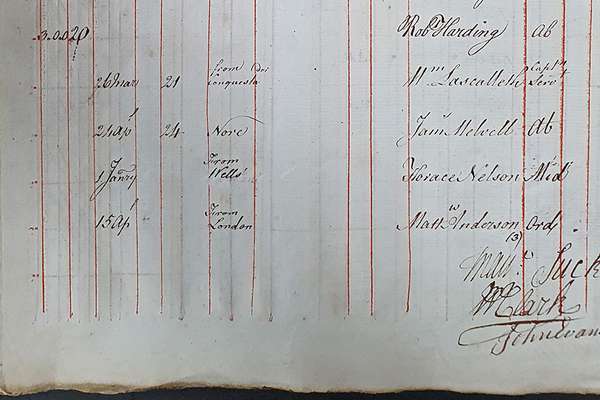 3.0.0 20 Robt Harding Ab
26 Mar 21 from Conquesta Wm Lascalleth Captn Servt
24 Ap 24 Nore Jams Melvell Ab
1 Janry From Wells Horace Nelson Mid
15 Ap " From London Mattw Anderson Ord
(3)
Mau: Suck
Clark
John Evans